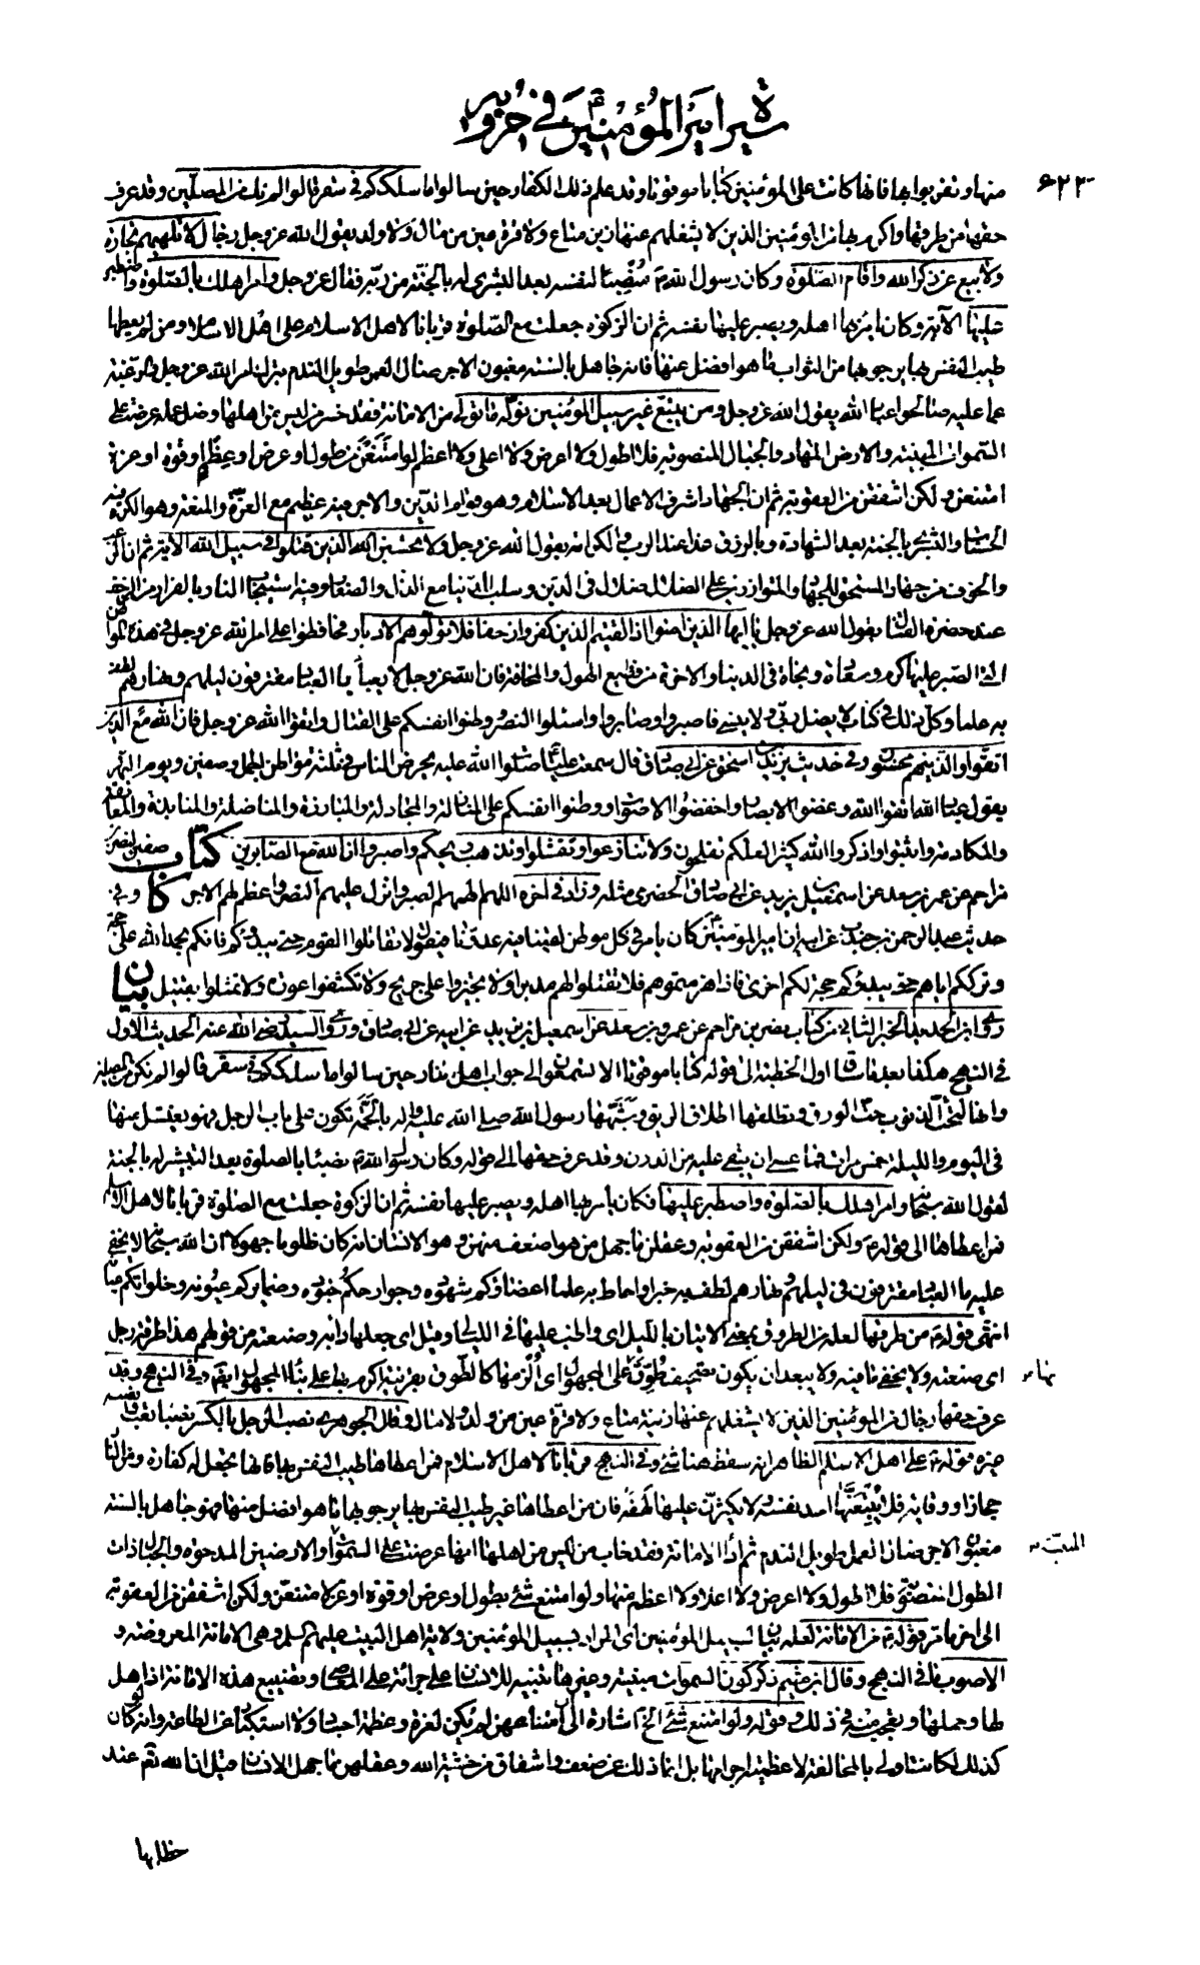 سيرة امير المؤمنين ع في حروبه
۶۲۲
منها وتقربوا بها فانها كانت على المؤمنين كتابا موقوتا وقد علم ذلك الكفار حين سالوا ما سلككم في سقر قالوا لم نك من المصلين وقد عرف
حقها من طرقها واكرم بها من المؤمنين الذين لا يشغلهم عنها زين متاع ولا قرة عين من مال ولا ولد يقول الله عز وجل رجال لا تلهيهم تجارة
ولا بيع عن ذكر الله واقام الصلوة وكان رسول الله ص منصبا لنفسه بعد البشرى له بالجنة من ربه فقال عز وجل وامر اهلك بالصلوة واصطبر
عليها الآية وكان يامر بها اهله ويصبر عليها نفسه ثم ان الزكوة جعلت مع الصلوة قربانا لاهل الاسلام على اهل الاسلام ومن لم يعطها
طيب النفس بها يرجو بها من الثواب ما هو افضل منها فانه جاهل بالسنة مغبون الاجر ضال العمر طويل الندم بترك امر الله عز وجل والرغبة
عما عليه صالحوا عباد الله يقول الله عز وجل ومن يتبع غير سبيل المؤمنين نوله ما تولى من الامانة فقد خسر من ليس من اهلها وضل عمله عرضت على
السموات المبنية والارض المهاد والجبال المنصوبة فلا اطول ولا اعرض ولا اعلى ولا اعظم لو امتنعن من طول او عرض او عظم او قوة او عزة
امتنعن ولكن اشفقن من العقوبة ثم ان الجهاد اشرف الاعمال بعد الاسلام وهو قوام الدين والاجر فيه عظيم مع العزة والمنعة وهو الكرة فيه
الحسنات والبشرى بالجنة بعد الشهادة وبالرزق غدا عند الرب والكرامة يقول الله عز وجل ولا تحسبن الذين قتلوا في سبيل الله الآية ثم ان الرعب
والخوف من جهاد المستحق للجهاد والمتوازرين على الضلال ضلال في الدين وسلب الدنيا مع الذل والصغار وفيه استيجاب النار بالفرار من الزحف
عند حضرة القتال يقول الله عز وجل يا ايها الذين امنوا اذا لقيتم الذين كفروا زحفا فلا تولوهم الادبار فحافظوا على امر الله عز وجل في هذه المواطن
التي الصبر عليها كرم وسعادة ونجاة في الدنيا والاخرة من فظيع الهول والمخافة فان الله عز وجل لا يعبأ بما العباد مقترفون ليلهم ونهارهم لطف
به علما وكل ذلك في كتاب لا يضل ربي ولا ينسى فاصبروا وصابروا واسئلوا النصر ووطنوا انفسكم على القتال واتقوا الله عز وجل فان الله مع الذين
اتقوا والذين هم محسنون وفي حديث يزيد بن اسحق عن ابي صادق قال سمعت عليا صلوات الله عليه يحرض الناس في ثلثة مواطن الجمل وصفين ويوم النهر
يقول عباد الله اتقوا الله وغضوا الابصار واخفضوا الاصوات ووطنوا انفسكم على المنازلة والمجادلة والمبارزة والمناضلة والمنابذة والمعانقة
والمكادمة واثبتوا واذكروا الله كثيرا لعلكم تفلحون ولا تنازعوا وتفشلوا وتذهب ريحكم واصبروا ان الله مع الصابرين كتاب صفين لنصر بن
مزاحم عن عمر بن سعد عن اسمعيل بن يزيد عن ابي صادق الحضرمي مثله وزاد في اخره اللهم الهمهم الصبر وانزل عليهم النصر واعظم لهم الاجر كا وفي
حديث عبد الرحمن بن جندب عن ابيه ان امير المؤمنين ع كان يامر في كل موطن لقينا فيه عدونا فيقول لا تقاتلوا القوم حتى يبدؤكم فانكم بحمد الله على حجة
وترككم اياهم حتى يبدؤكم حجة لكم اخرى فاذا هزمتموهم فلا تقتلوا لهم مدبرا ولا تجيزوا على جريح ولا تكشفوا عورة ولا تمثلوا بقتيل بيان
روى ابن ابي الحديد الخبر الثاني من كتاب نصر بن مزاحم عن عمرو بن سعد عن اسمعيل بن يزيد عن ابيه عن ابي صادق وروى السيد رضي الله عنه الحديث الاول
في النهج هكذا تعاهدوا اول الخطبة الى قوله كتابا موقوتا الا تسمعون الى جواب اهل النار حين سالوا ما سلككم في سقر قالوا لم نك من المصلين
وانها لتحت الذنوب حت الورق وتطلقها اطلاق الربق وشبهها رسول الله صلى الله عليه واله بالحمة تكون على باب الرجل فهو يغتسل منها
في اليوم والليلة خمس مرات فما عسى ان يبقى عليه من الدرن وقد عرف حقها الى قوله وكان رسول الله ص نصبا بالصلوة بعد التبشير له بالجنة
لقول الله سبحانه وامر اهلك بالصلوة واصطبر عليها فكان يامر بها اهله ويصبر عليها نفسه ثم ان الزكوة جعلت مع الصلوة قربانا لاهل الاسلام
فمن اعطاها الى قوله ع ولكن اشفقن من العقوبة وعقلن ما جهل من هو اضعف منهن وهو الانسان انه كان ظلوما جهولا ان الله سبحانه لا يخفى
عليه ما العباد مقترفون في ليلهم ونهارهم لطف به خبرا واحاط به علما اعضاؤكم شهوده وجوارحكم جنوده وضمايركم عيونه وخلواتكم عيانه
انتهى قوله ع من طرقها لعله من الطروق بمعنى الاتيان بالليل اي واظب عليها في الليالي وقيل اي جعلها دابه وصنعته من قولهم هذا طرقة رجل
اي صنعته ولا يخفى ما فيه ولا يبعد ان يكون تصحيف طوق على المجهول اي الزمها كالطوق بقرينة اكرم بها على بناء المجهول ايضا وفي النهج وقد
نهاء
عرف حقها رجال من المؤمنين الذين لا يشغلهم عنها زينة متاع ولا قرة عين من ولد ولا مال وقال الجوهري نصب الرجل بالكسر نصبا تعب وانصبه
غيره قوله ع على اهل الاسلام الظاهر انه سقط هنا شئ وفي النهج قربانا لاهل الاسلام فمن اعطاها طيب النفس بها فانها تجعل له كفارة ومن النار
حجازا ووقاية فلا يتبعنها احد نفسه ولا يكثرن عليها لهفه فان من اعطاها غير طيب النفس بها يرجو بها ما هو افضل منها فهو جاهل بالسنة
مغبون الاجر ضال العمل طويل الندم ثم اداء الامانة فقد خاب من ليس من اهلها انها عرضت على السموات والارضين المدحوة والجبال ذات
المبنية
الطول المنصوبة فلا اطول ولا اعرض ولا اعلا ولا اعظم منها ولو امتنع شئ بطول او عرض او قوة او عز لامتنعن ولكن اشفقن من العقوبة
الى اخر ما مر قوله ع من الامانة لعله بيان لسبيل المؤمنين اي المراد بسبيل المؤمنين ولاية اهل البيت عليهم السلم وهي الامانة المعروضة و
الاصوب ما في النهج وقال ابن ميثم ذكر كون السموات مبنية وغيرها تنبيه للانسان على جرأته على المعاصي وتضييع هذه الامانة اذا هل
لها وحملها وتعجب منه في ذلك وقوله ولو امتنع شئ الخ اشارة الى ان امتناعهن لم يكن لعزة وعظمة اجساد ولا استكبار عن الطاعة وانه لو كان
كذلك لكانت اولى بالمخالفة لاعظمية اجرامها بل انما ذلك عن ضعف واشفاق من خشية الله وعقلهن ما جهل الانسان قيل ان الله تع عند
خطابها